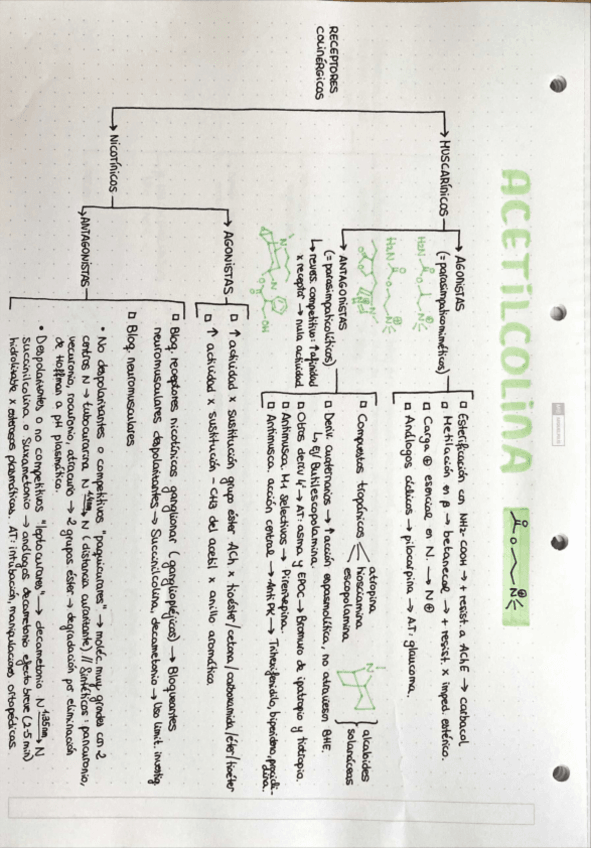 ACETILCOLINA
RECEPTORES
COLINÉRGICOS
MUSCARÍNICOS
AGONISTAS
(= parasimpaticomiméticos)
□ Esterificación con NH2-COOH → + resist. a AChE → carbacol
□ Metilación en β → betanecol → + resist. x imped. estérico.
□ Carga ⊕ esencial en N. → N⊕
□ Análogos cíclicos → pilocarpina → AT: glaucoma.
H2N
H2N
ANTAGONISTAS
(= parasimpaticolíticos)
↳ revers. competitivo: ↑ afinidad
x receptor → nula actividad
□ Compuestos tropánicos
atropina
hiosciamina
escopolamina
alcaloides
solanáceas
□ Deriv. cuaternarios → ↑ acción espasmolítica, no atraviesan BHE.
↳ Ej/ Butilescopolamina.
□ Otros deriv 4º → AT: asma y EPOC → Bromuro de ipatropio y tiotropio.
□ Antimusca. M1 selectivos → Pirenzepina.
□ Antimusca. acción central → Anti PK → Trihexifenidilo, biperideno, prociclidina.
NICOTÍNICOS
AGONISTAS
□ ↑ actividad x sustitución grupo éster ACh x tioéster/cetona/carboxamida/éter/tioéter
□ ↑ actividad x sustitución -CH3 del acetil x anillo aromático.
ANTAGONISTAS
□ Bloq. receptores nicotínicos ganglionar (gangliopléjicos) → Bloqueantes
neuromusculares despolarizantes → Succinilcolina, decametonio → Uso limit. investig
□ Bloq. neuromusculares
• No despolarizantes o competitivos "paquicurares" → moléc. muy grandes con 2
centros N → tubocurarina N → N (distancia curarizante) // Sintéticos: pancuronio,
vecuronio, rocuronio, atracurio → 2 grupos éster → degradación por eliminación
de Hoffman a pH plasmático.
• Despolarizantes o no competitivos "leptocurares" → decametonio N 1.35nm N
Succinilcolina o Suxametonio → análogos decametonio efecto breve (2-5 min)
hidrolizable x esterasas plasmáticas. AT: intubación, manipulaciones ortopédicas.